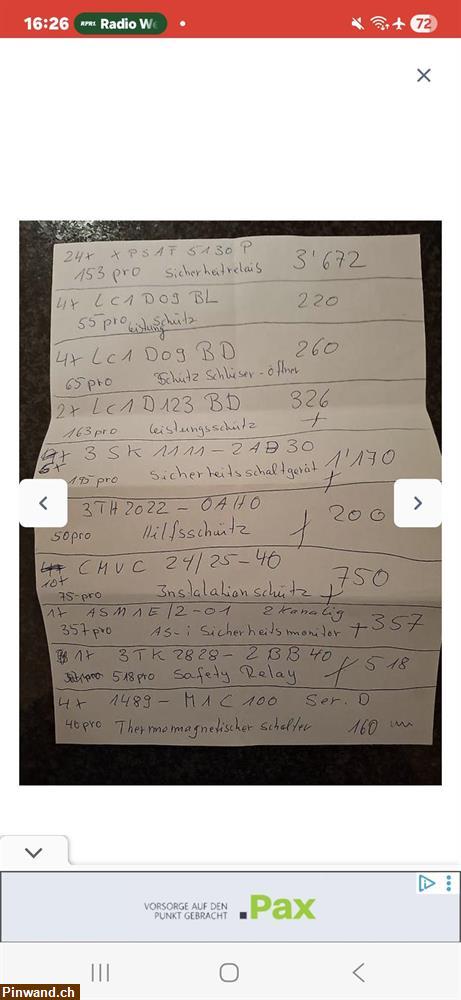 16:26 RPR1. Radio We 72
24x XPSAF 5130 P 3'672
153 pro Sicherheitrelais
4x LC1 D09 BL 220
55 pro Leistung Schütz
4x LC1 D09 BD 260
65 pro Schütz Schliser-öffner
2x LC1 D123 BD 326
163 pro Leistungsschütz +
6x 3 SK 1111-2AB30 1'170
195 pro Sicherheitsschaltgerät +
3TH2022-OAHO 200
50 pro Hilfsschütz +
10x CMUC 24/25-40 750
75-pro Instalationschütz +
1x ASM1E/2-01 2 kanalig
357 pro AS-i Sicherheitsmonitor + 357
1x 3TK 2828-2BB40 518
518 pro Safety Relay +
4x 1489-M1C100 Ser. D
40 pro Thermomagnetischer Schalter 160
VORSORGE AUF DEN
PUNKT GEBRACHT .Pax
Pinwand.ch